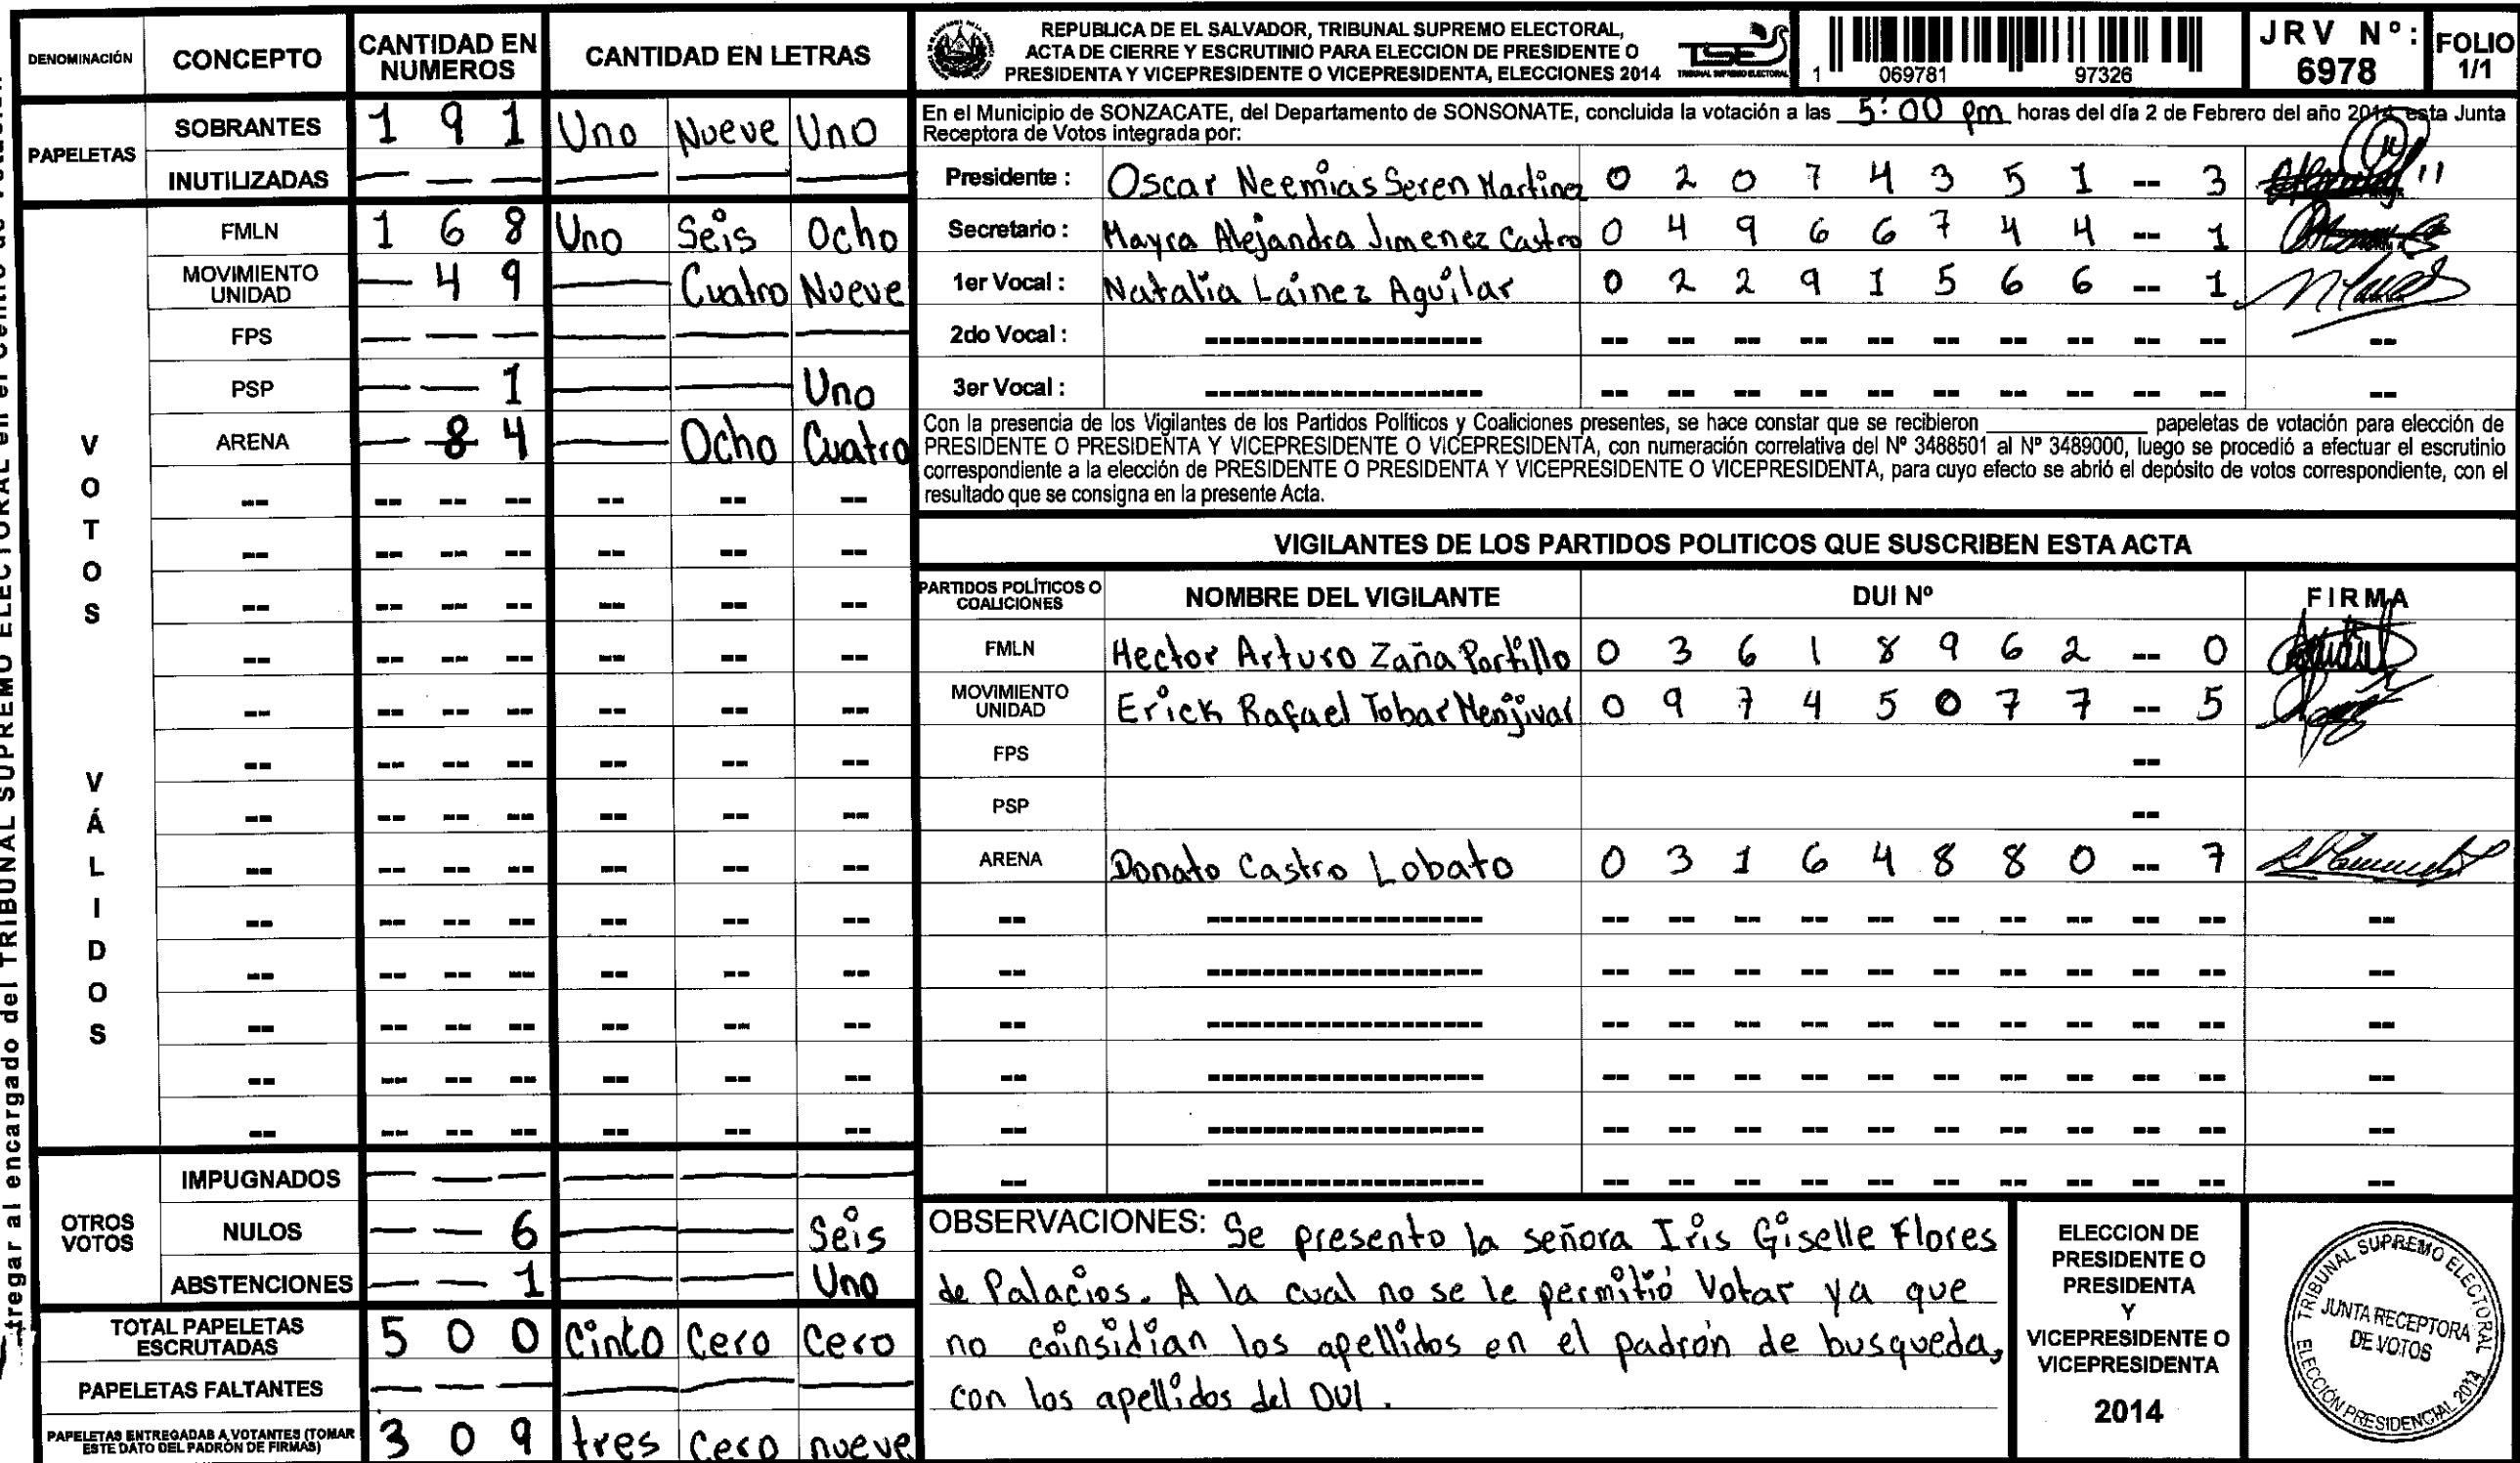 DENOMINACIÓN CONCEPTO CANTIDAD EN NUMEROS CANTIDAD EN LETRAS
PAPELETAS
SOBRANTES 1 9 1 Uno Nueve Uno
INUTILIZADAS — — — — — —
VOTOS VÁLIDOS
FMLN 1 6 8 Uno Seis Ocho
MOVIMIENTO UNIDAD — 4 9 — Cuatro Nueve
FPS — — — — — —
PSP — — 1 — — Uno
ARENA — 8 4 — Ocho Cuatro
-- -- -- -- -- -- --
-- -- -- -- -- -- --
-- -- -- -- -- -- --
-- -- -- -- -- -- --
-- -- -- -- -- -- --
-- -- -- -- -- -- --
-- -- -- -- -- -- --
-- -- -- -- -- -- --
-- -- -- -- -- -- --
-- -- -- -- -- -- --
-- -- -- -- -- -- --
-- -- -- -- -- -- --
-- -- -- -- -- -- --
OTROS VOTOS
IMPUGNADOS — — — — — —
NULOS — — 6 — — Seis
ABSTENCIONES — — 1 — — Uno
TOTAL PAPELETAS ESCRUTADAS 5 0 0 Cinco Cero Cero
PAPELETAS FALTANTES — — — — — —
PAPELETAS ENTREGADAS A VOTANTES (TOMAR ESTE DATO DEL PADRÓN DE FIRMAS) 3 0 9 tres cero nueve
REPUBLICA DE EL SALVADOR, TRIBUNAL SUPREMO ELECTORAL,
ACTA DE CIERRE Y ESCRUTINIO PARA ELECCION DE PRESIDENTE O
PRESIDENTA Y VICEPRESIDENTE O VICEPRESIDENTA, ELECCIONES 2014
TSE
TRIBUNAL SUPREMO ELECTORAL
1 069781 97326
JRV Nº: 6978
FOLIO 1/1
En el Municipio de SONZACATE, del Departamento de SONSONATE, concluida la votación a las 5:00 pm horas del día 2 de Febrero del año 2014, esta Junta
Receptora de Votos integrada por:
Presidente : Oscar Neemias Seren Martinez 0 2 0 7 4 3 5 1 -- 3
Secretario : Mayra Alejandra Jimenez Castro 0 4 9 6 6 7 4 4 -- 1
1er Vocal : Natalia Lainez Aguilar 0 2 2 9 1 5 6 6 -- 1
2do Vocal : ------------------ -- -- -- -- -- -- -- -- -- -- --
3er Vocal : ------------------ -- -- -- -- -- -- -- -- -- -- --
Con la presencia de los Vigilantes de los Partidos Políticos y Coaliciones presentes, se hace constar que se recibieron ________ papeletas de votación para elección de
PRESIDENTE O PRESIDENTA Y VICEPRESIDENTE O VICEPRESIDENTA, con numeración correlativa del Nº 3488501 al Nº 3489000, luego se procedió a efectuar el escrutinio
correspondiente a la elección de PRESIDENTE O PRESIDENTA Y VICEPRESIDENTE O VICEPRESIDENTA, para cuyo efecto se abrió el depósito de votos correspondiente, con el
resultado que se consigna en la presente Acta.
VIGILANTES DE LOS PARTIDOS POLITICOS QUE SUSCRIBEN ESTA ACTA
PARTIDOS POLÍTICOS O COALICIONES NOMBRE DEL VIGILANTE DUI Nº FIRMA
FMLN Hector Arturo Zaña Portillo 0 3 6 1 8 9 6 2 -- 0
MOVIMIENTO UNIDAD Erick Rafael Tobar Menjivar 0 9 7 4 5 0 7 7 -- 5
FPS --
PSP --
ARENA Donato Castro Lobato 0 3 1 6 4 8 8 0 -- 7
-- ------------------ -- -- -- -- -- -- -- -- -- -- --
-- ------------------ -- -- -- -- -- -- -- -- -- -- --
-- ------------------ -- -- -- -- -- -- -- -- -- -- --
-- ------------------ -- -- -- -- -- -- -- -- -- -- --
-- ------------------ -- -- -- -- -- -- -- -- -- -- --
-- ------------------ -- -- -- -- -- -- -- -- -- -- --
OBSERVACIONES: Se presento la señora Iris Giselle Flores
de Palacios. A la cual no se le permitió Votar ya que
no coinsidian los apellidos en el padrón de busqueda,
con los apellidos del DUI.
ELECCION DE
PRESIDENTE O
PRESIDENTA
Y
VICEPRESIDENTE O
VICEPRESIDENTA
2014
TRIBUNAL SUPREMO ELECTORAL
JUNTA RECEPTORA
DE VOTOS
ELECCIÓN PRESIDENCIAL 2014
tregar al encargado del TRIBUNAL SUPREMO ELECTORAL en el Centro de